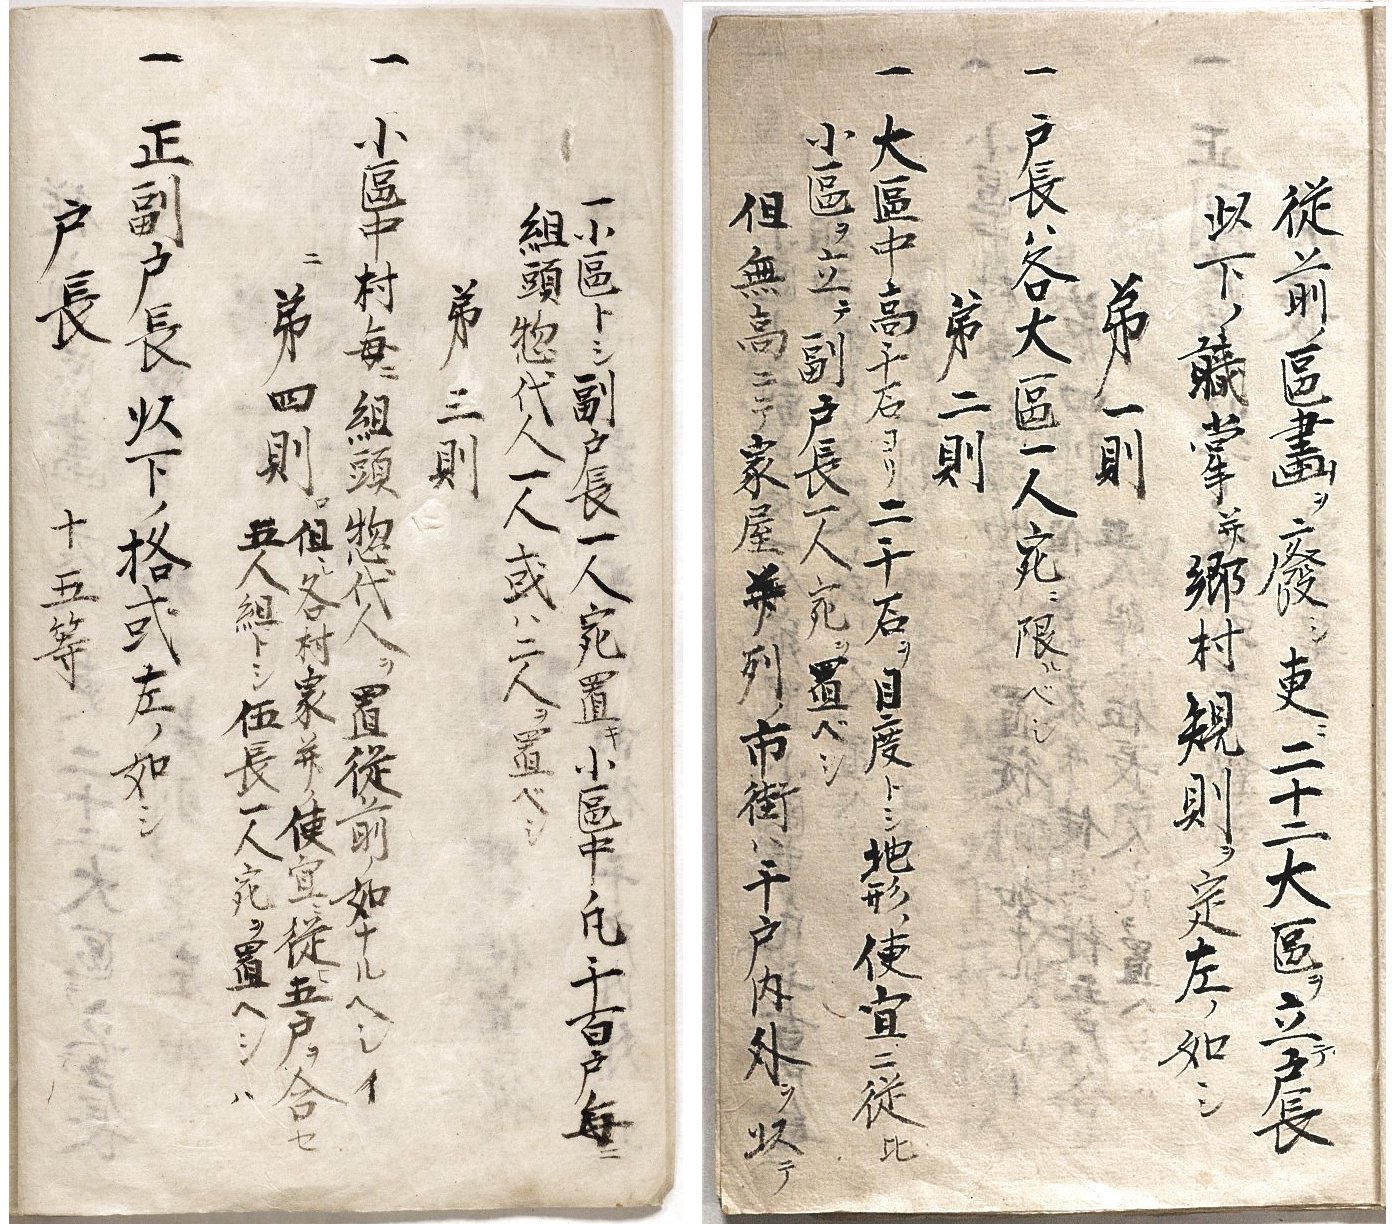 従前ノ區畫ヲ廢シ更ニ二十二大區ヲ立テ戸長
以下ノ職掌并郷村規則ヲ定左ノ如シ
第一則
一 戸長ハ各大區一人宛ニ限ルベシ
第二則
一 大區中高千石ヨリ二千石ヲ目度トシ地形ノ使宜ニ従比
小區ヲ立テ副戸長一人宛ヲ置ベシ
但無高ニテ家屋并列ノ市街ハ千戸内外ヲ以テ
一小區トシ副戸長一人宛置キ小區中凡千百戸毎ニ
組頭惣代人一人或ハ二人ヲ置ベシ
第三則
一 小區中村毎ニ組頭惣代人ヲ置従前ノ如ナルヘシイ
ニ
第四則 ロ但シ各村家并ノ使宜ニ従ヒ五戸ヲ合セ
五人組トシ伍長一人宛ヲ置ヘシハ
一 正副戸長以下ノ格式左ノ如シ
戸長 十五等